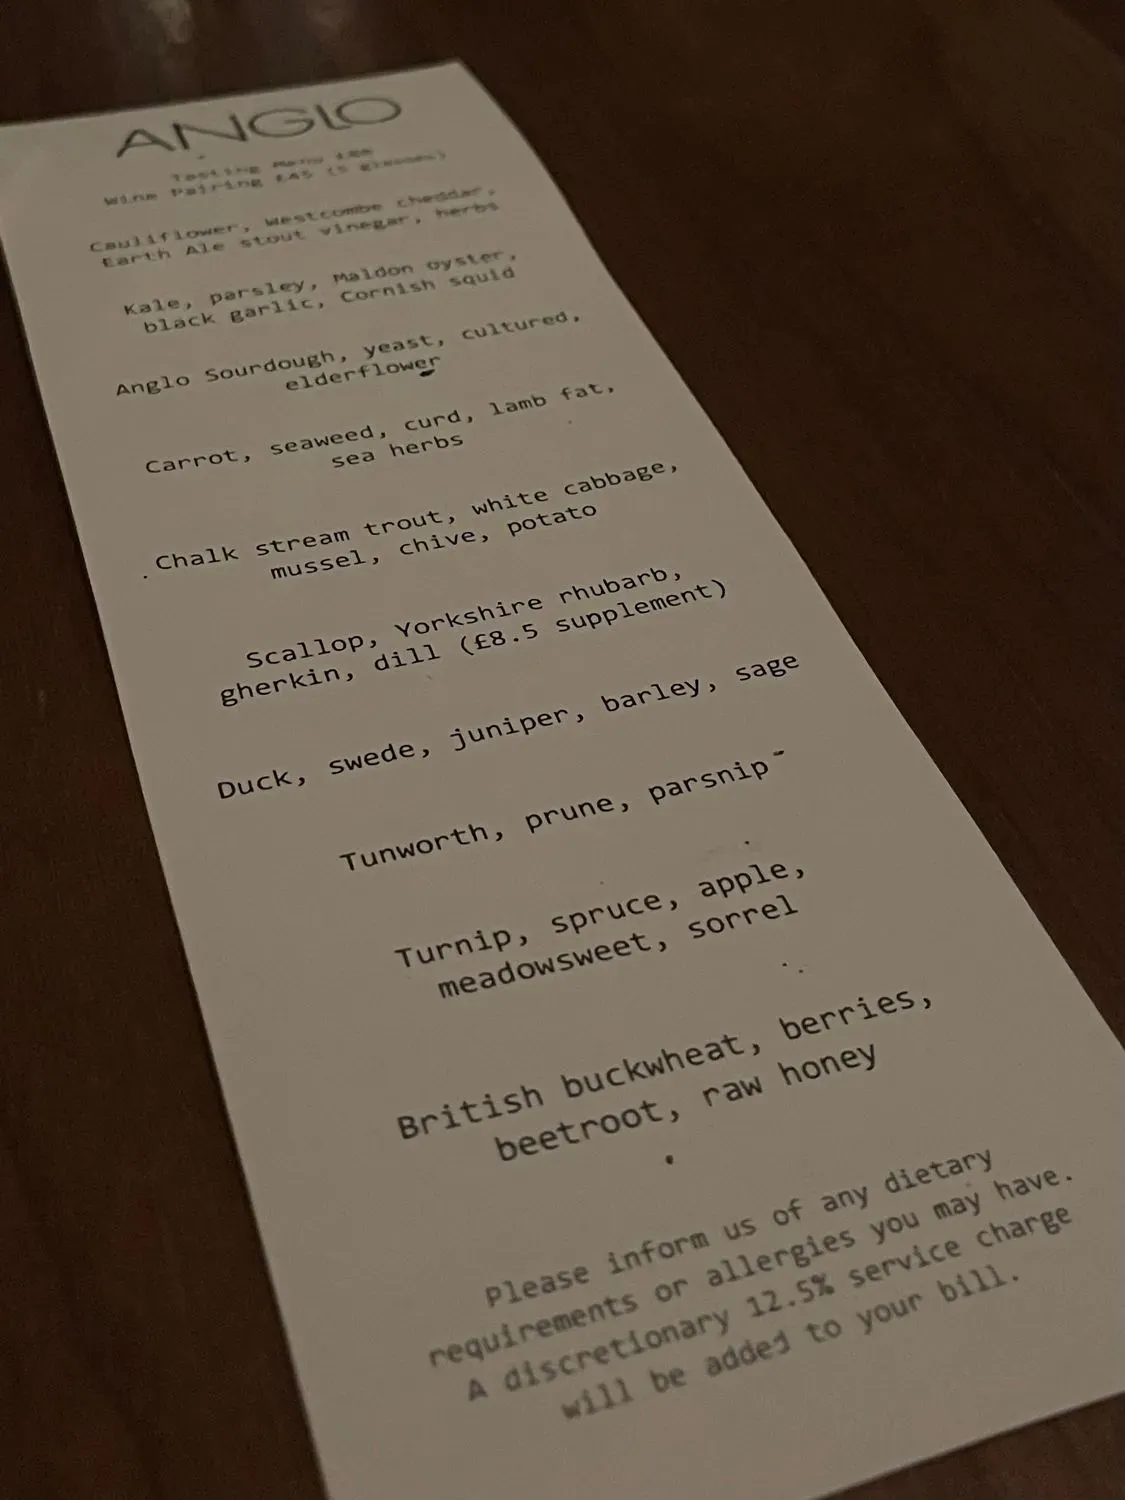 ANGLO
Tasting Menu
Wine Pairing £45 (5 glasses)
Cauliflower, Westcombe cheddar,
Earth Ale stout vinegar, herbs
Kale, parsley, Maldon oyster,
black garlic, Cornish squid
Anglo Sourdough, yeast, cultured,
elderflower
Carrot, seaweed, curd, lamb fat,
sea herbs
Chalk stream trout, white cabbage,
mussel, chive, potato
Scallop, Yorkshire rhubarb,
gherkin, dill (£8.5 supplement)
Duck, swede, juniper, barley, sage
Tunworth, prune, parsnip
Turnip, spruce, apple,
meadowsweet, sorrel
British buckwheat, berries,
beetroot, raw honey
Please inform us of any dietary
requirements or allergies you may have.
A discretionary 12.5% service charge
will be added to your bill.